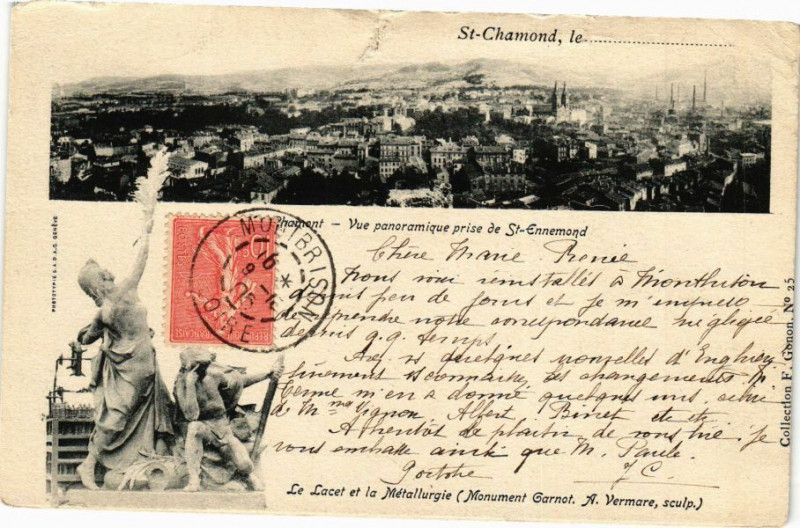 St-Chamond, le
hamont – Vue panoramique prise de St-Ennemond
PHOTOTYPIE S.A.D.A.G. GENÈVE
MONTBRISON
16
LOIRE
10
Chère Marie Renée
Nous voici réinstallés à Montbrison
depuis peu de jours et je m'empresse
de reprendre notre correspondance négligée
depuis q.q. temps.
quelques nouvelles d'Enghien
ces changements. M
m'en a donné quelques uns, ainsi
de Mme Vignon, Albert, Binet etc etc
A bientôt le plaisir de vous lire. je
vous embrasse ainsi que M. Paule.
J.C.
Le Lacet et la Métallurgie (Monument Carnot. A. Vermare, sculp.)
Collection F. Gonon, No 25